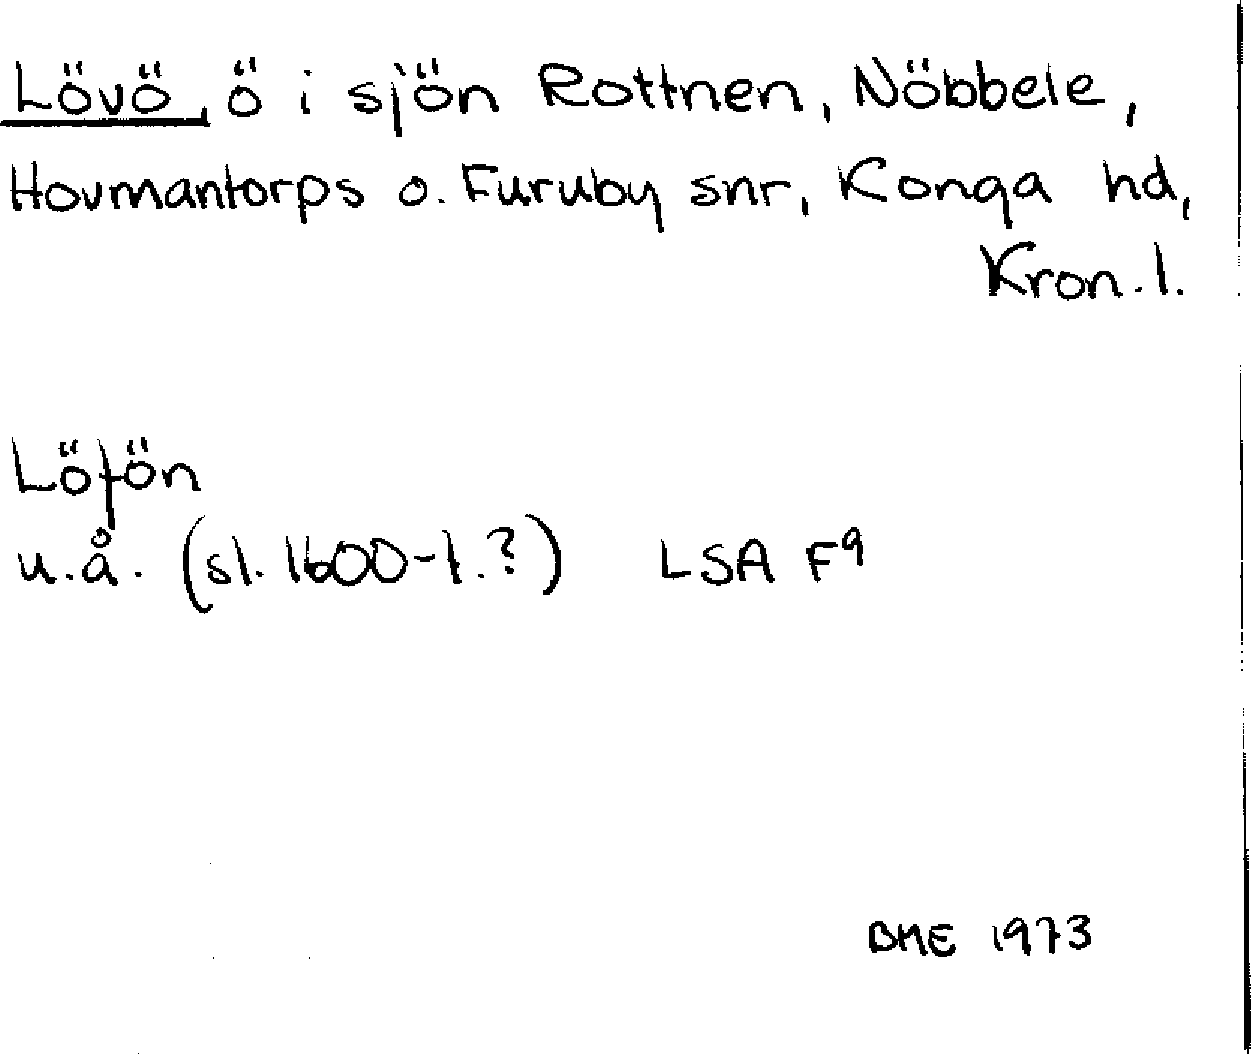 Lövö, ö i sjön Rottnen, Nöbbele,
Hovmantorps o. Furuby snr, Konga hd,
Kron. l.
Löfön
u.å. (sl. 1600-t.?) LSA F9
BME 1973